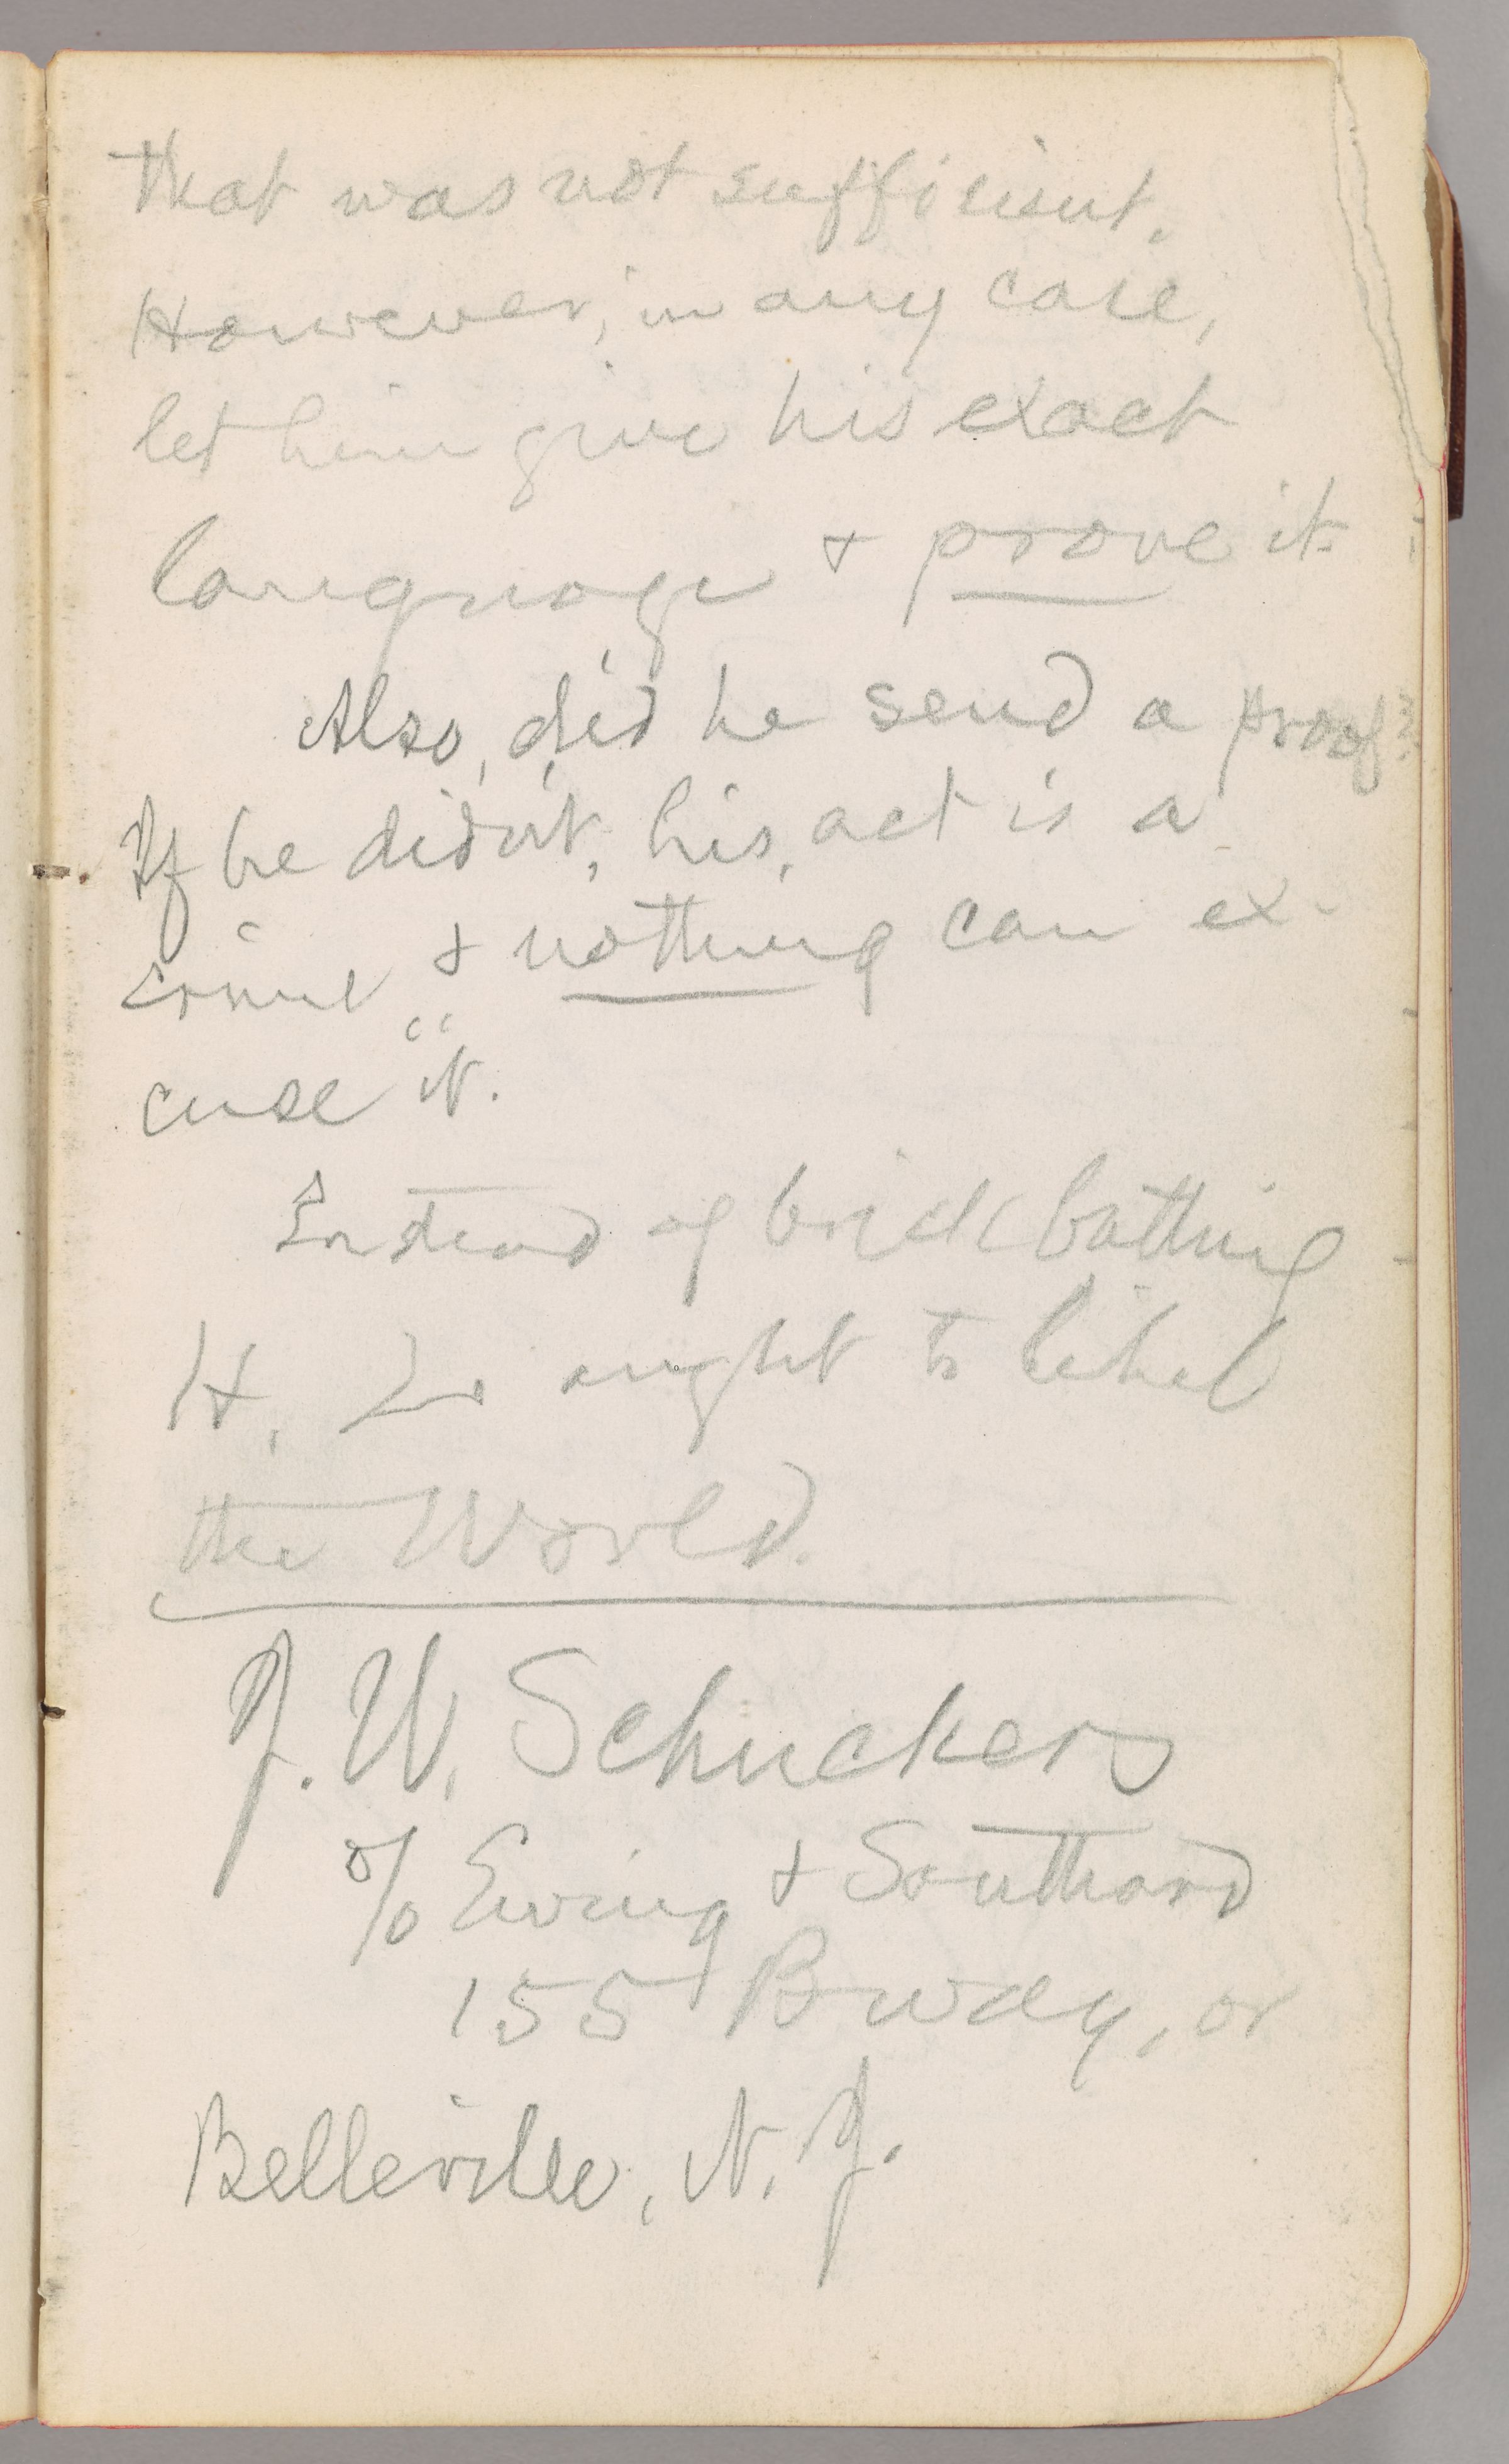 that was not sufficient.
However, in any case,
let him give his exact
language & prove it.
Also, did he send a proof?
If he didn't, his act is a
crime, & nothing can ex-
cuse it.
Instead of brickbatting
H, L ought to libel
the World.
J. W. Schuckers
c/o Ewing & Southard
155 Bway, or
Belleville, N. J.